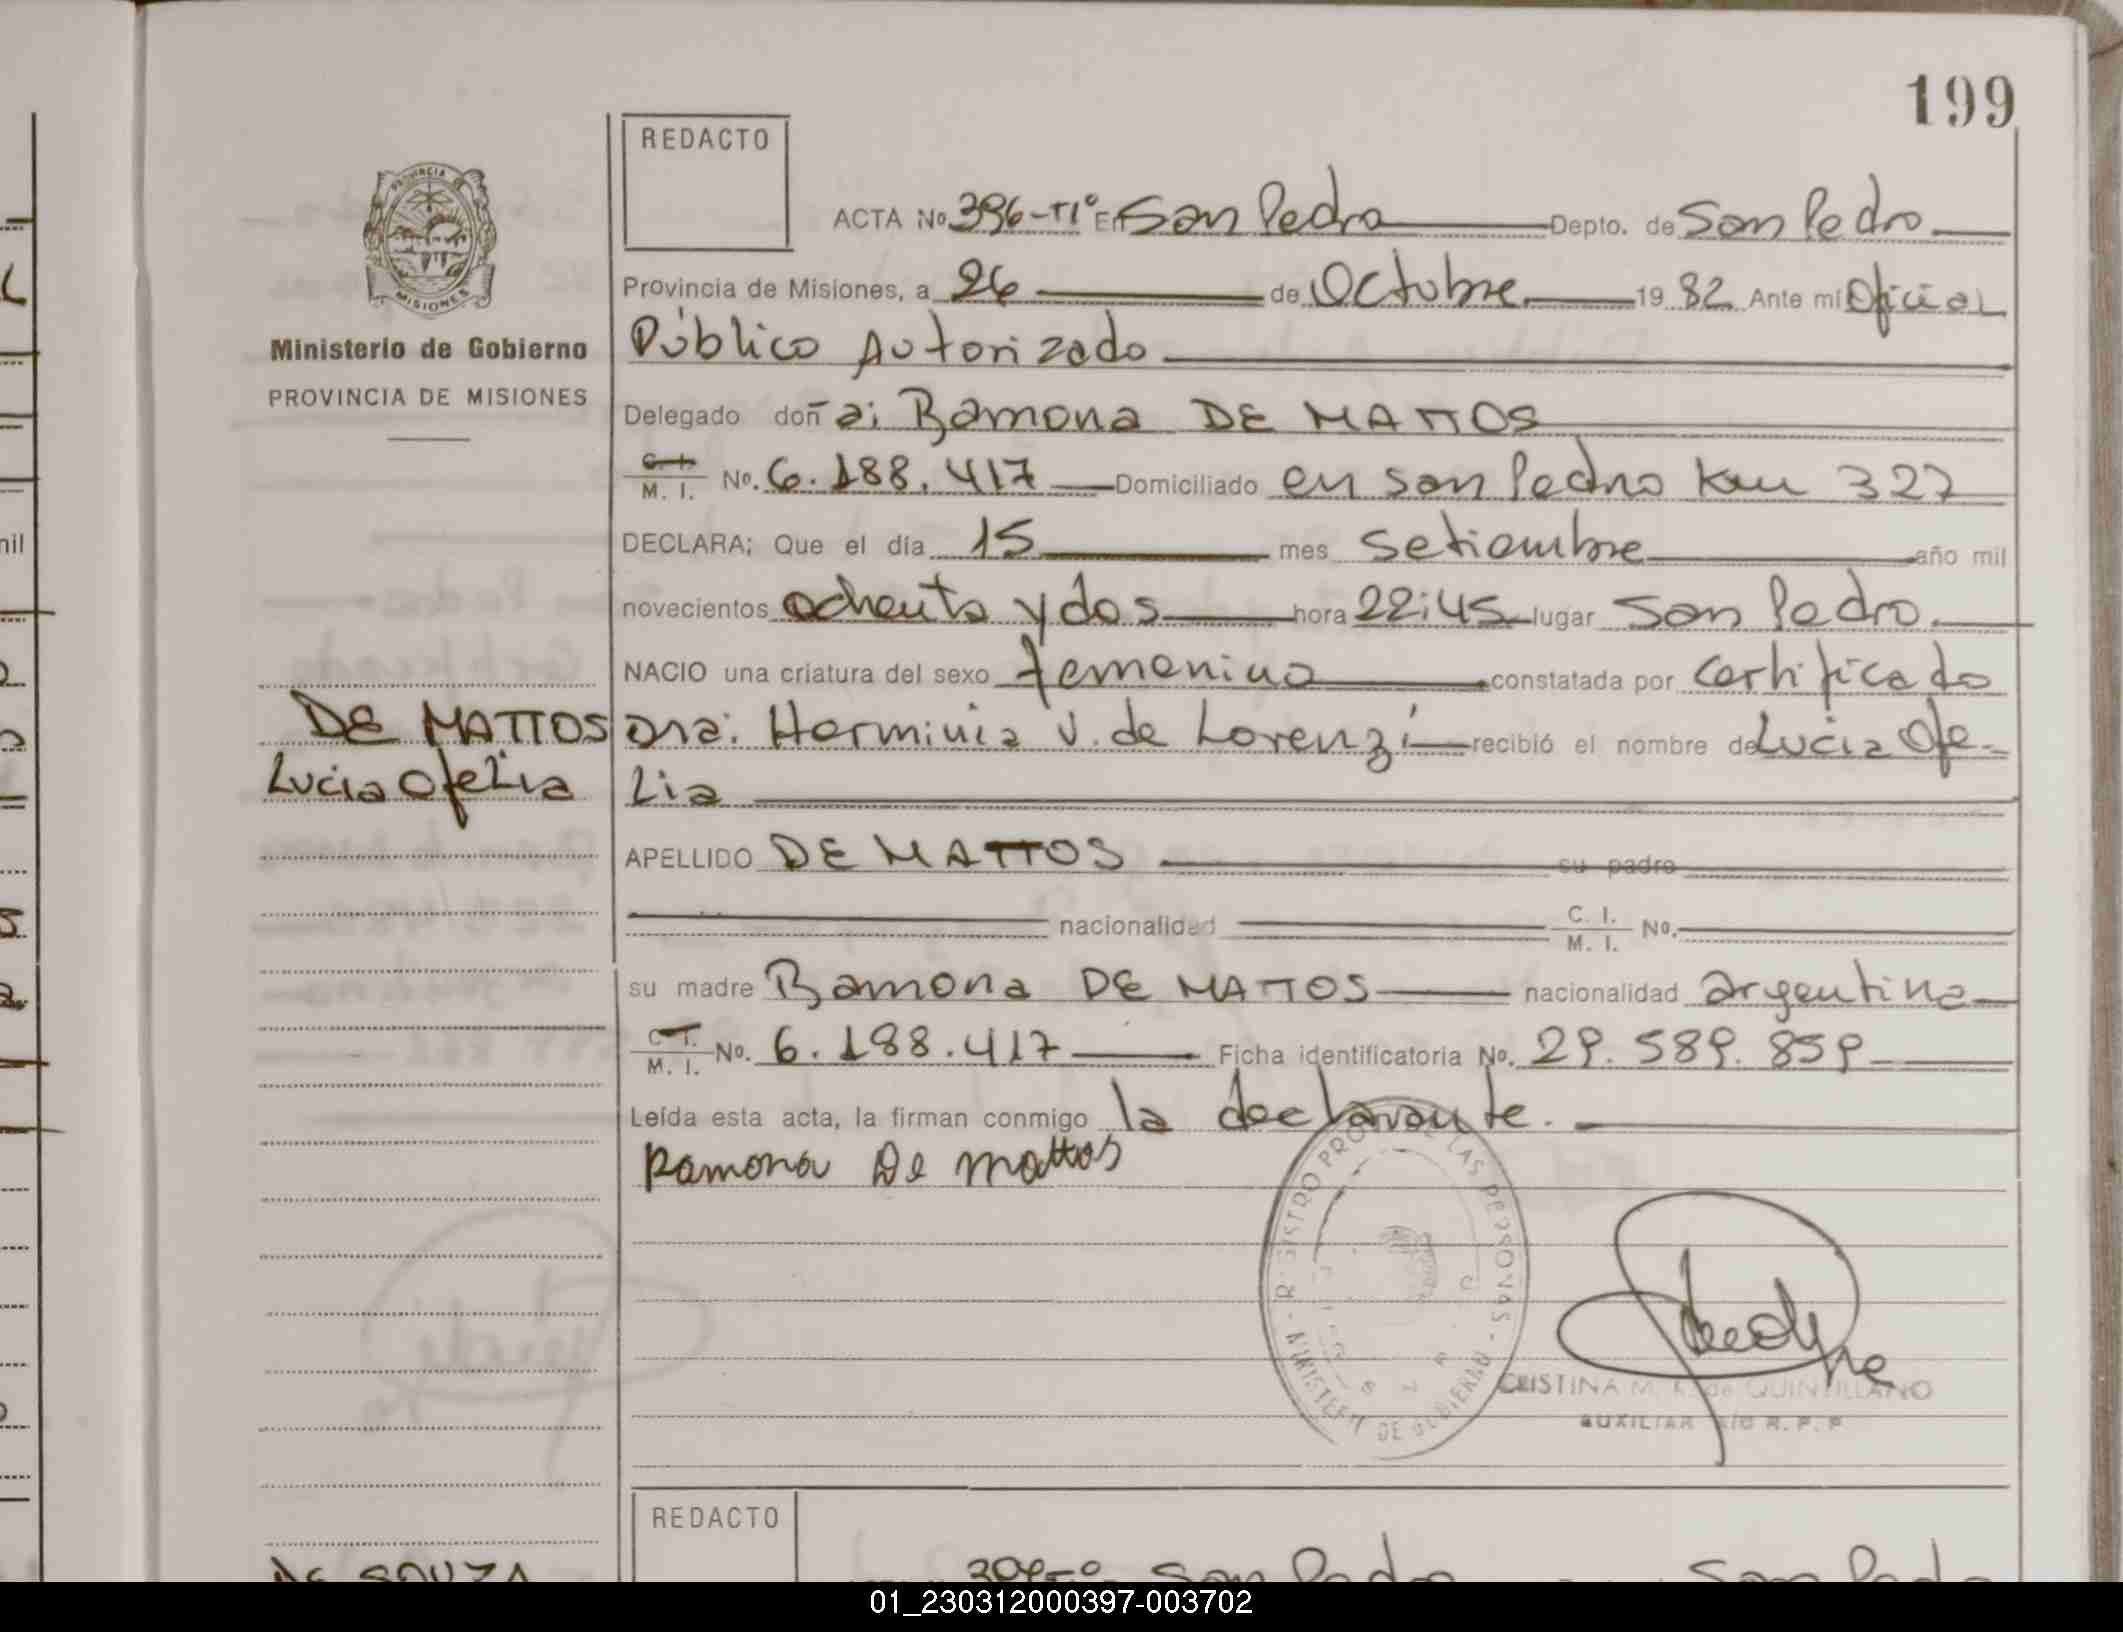 199
REDACTO
ACTA No. 396-TIº En San Pedro Depto. de San Pedro
Provincia de Misiones, a 26 de Octubre 19 82 Ante mí Oficial
Público Autorizado
Ministerio de Gobierno
PROVINCIA DE MISIONES
Delegado doña: Ramona DE MATTOS
C. I. M. I. No. 6.188.417 Domiciliado en San Pedro Km 327
DECLARA; Que el día 15 mes Setiembre año mil
novecientos ochenta y dos hora 22:45 lugar San Pedro.
NACIO una criatura del sexo femenino constatada por Certificado
DE MATTOS
Lucia Ofelia
Dra: Herminia V. de Lorenzi recibió el nombre de Lucia Ofe-
lia
APELLIDO DE MATTOS su padre
nacionalidad C. I. M. I. No.
su madre Ramona DE MATTOS nacionalidad argentina
C. I. M. I. No. 6.188.417 Ficha identificatoria No. 29.589.859
Leída esta acta, la firman conmigo la declarante.
Ramona De mattos
MINISTERIO DE GOBIERNO
CRISTINA M. de QUINTILLANO
AUXILIAR R. P. P
REDACTO
DE SOUZA
San Pedro San Pedro
01_230312000397-003702